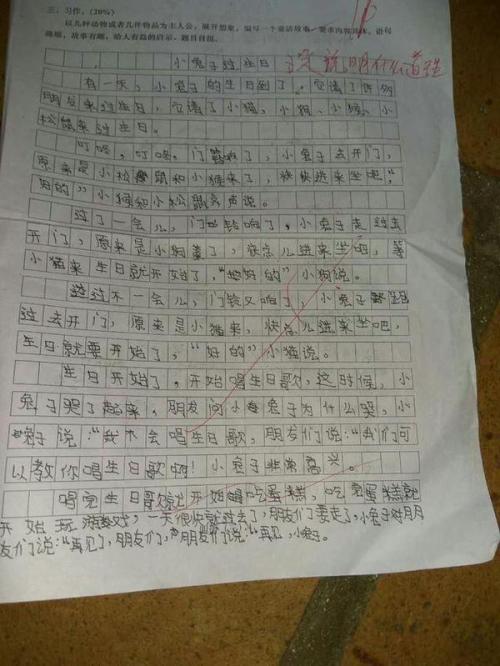 三、习作。(20%)
以几种动物或者几种物品为主人公,展开想象,编写一个童话故事。要求内容具体,语句
通顺,故事有趣,给人有益的启示。题目自拟。
小兔子过生日
要说明什么道理
有一天,小兔子的生日到了。它请了许多
朋友来过生日,它请了小猫,小狗、小猴、小
松鼠来过生日。
叮咚,叮咚。门铃响了,小兔子去开门,
原来是小松鼠和小猴来了,快快进来坐吧,"
好的"小猴和小松鼠齐声说。
过了一会儿,门铃响了,小兔子走过去
开门,原来是小狗,快点儿进来坐吧,等
小猫来生日就开始了,"好的"小狗说。
过不一会儿,门铃又响了,小兔子
过去开门,原来是小猫来,快点儿进来坐吧,
生日就要开始了,"好的"小猫说。
生日开始了。开始唱生日歌,这时候,小
兔子哭了起来。朋友问小兔子为什么哭,小
兔子说:"我不会唱生日歌,朋友们说:"我们可
以教你唱生日歌啊!小兔子非常高兴。
唱完生日歌就开始吃蛋糕,吃完蛋糕就
开始玩,一天很快就过去了,朋友们要走了,小兔子对朋
友们说:"再见了,朋友们,"朋友们说:"再见,小兔子。